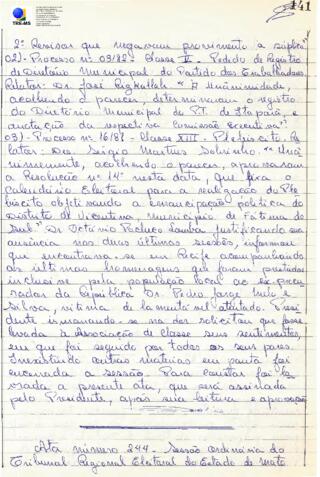 TRE-MS
141
2º Revisor que negavam provimento a súplica"
02) - Processo nº 03/82 - Classe V - Pedido de Registro
de Diretório Municipal do Partido dos Trabalhadores
Relator: Dr. José Rizkallah - "À Unânimidade,
acolhendo o parecer, determinaram o registro
do Diretório Municipal do P.T. de Itaporã e
anotação da respectiva Comissão Executiva".
03) - Processo nº 16/81 - Classe XIII - Plebiscito Re
lator: Des. Sérgio Martins Sobrinho - "Unâ
nimemente, acolhendo o parecer, aprovaram
a Resolução nº 14 nesta data, que fixa o
Calendário Eleitoral para a realização do Ple
biscito objetivando a emancipação política do
Distrito de Vicentina, município de Fátima do
Sul". Dr. Octávio Pacheco Lomba justificando sua
ausência nas duas últimas sessões, informou
que encontrava-se em Recife acompanhando
as últimas homenagens que foram prestadas
inclusive pela população local ao ex-procu
rador da República Dr. Pedro Jorge Melo e
Silva, vítima de lamentável atentado. Presi
dente irmanando-se na dor solicitou que fosse
levada à Associação de classe seus sentimentos,
em que foi seguido por todos os seus pares.
Inexistindo outras matérias em pauta foi
encerrada a sessão. Para constar foi la
vrada a presente ata, que será assinada
pelo Presidente, após sua leitura e aprovação
Ata número 244 - Sessão ordinária do
Tribunal Regional Eleitoral do Estado de Mato